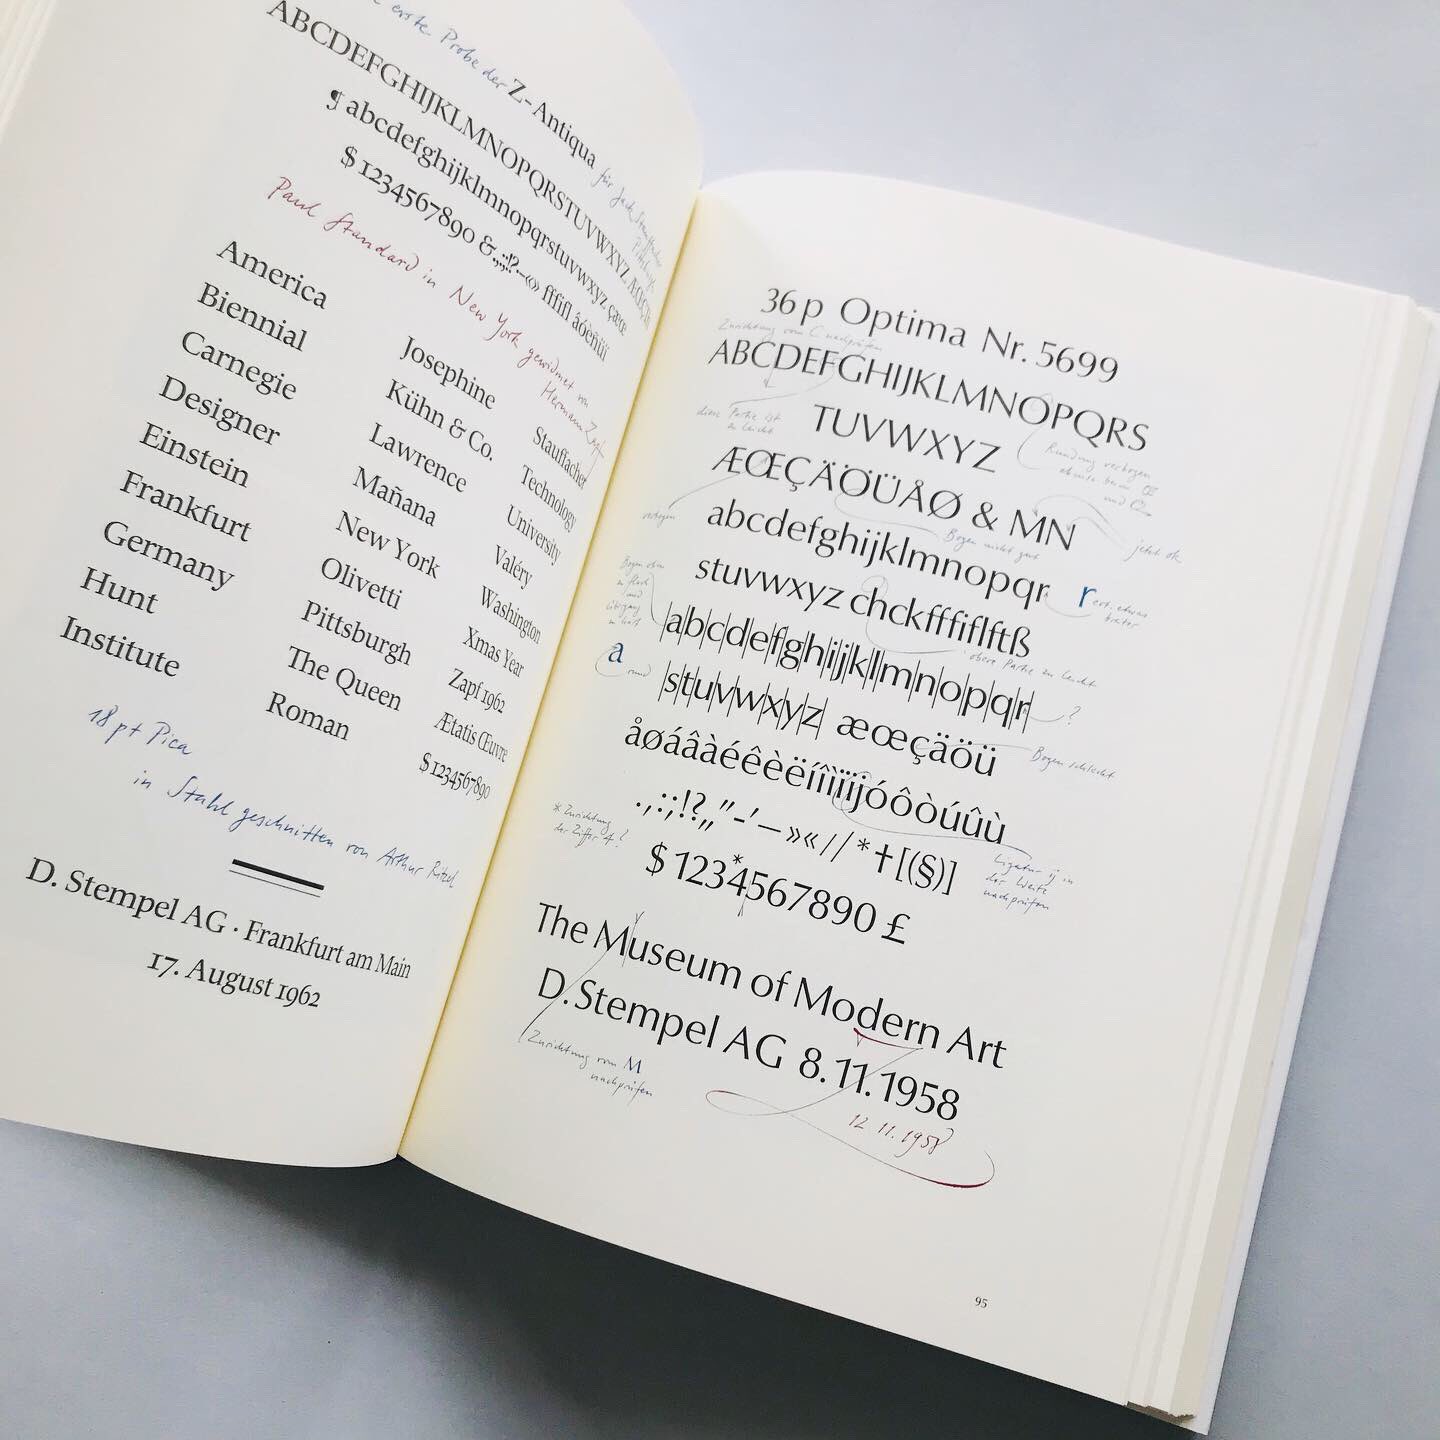 erste Probe der Z-Antiqua für Jack Stauffacher
ABCDEFGHIJKLMNOPQRSTUVWXYZ ÆŒÇØ
¶ abcdefghijklmnopqrstuvwxyz çæœ
$ 1234567890 &.,:;!?-«» fffifl áóèñüï
Paul Standard in New York gewidmet von
Hermann Zapf
America
Biennial
Carnegie
Designer
Einstein
Frankfurt
Germany
Hunt
Institute
Josephine
Kühn & Co.
Lawrence
Mañana
New York
Olivetti
Pittsburgh
The Queen
Roman
Stauffacher
Technology
University
Valéry
Washington
Xmas Year
Zapf 1962
Ætatis Œuvre
$ 1234567890
18 pt Pica
in Stahl geschnitten von Arthur Ritzel
D. Stempel AG · Frankfurt am Main
17. August 1962
36 p Optima Nr. 5699
Zurichtung vom C nachprüfen
ABCDEFGHIJKLMNOPQRS
diese Partie ist
zu leicht
TUVWXYZ
Rundung verbogen
ebenso beim Œ
und Q
ÆŒÇÄÖÜÅØ & MN
verbogen
Bogen nicht gut
jetzt ok
abcdefghijklmnopqr
r etwas
breiter
stuvwxyz chckfffiflftß
Bogen oben
zu flach
und
Übergang
obere Partie zu leicht
a|b|c|d|e|f|g|h|i|j|k|l|m|n|o|p|q|r| ?
a rund
|s|t|u|v|w|x|y|z| æœçäöü
Bogen schlecht
åøáâàéêèëíîìïijóôòúûù
* Zurichtung
der Ziffer 4?
.,:;!?„"-'—»«//*†[(§)]
Ligatur ij in
der Weite
nachprüfen
$ 1234*567890 £
The Museum of Modern Art
D. Stempel AG 8. 11. 1958
Zurichtung vom M
nachprüfen
12 11. 1958
95